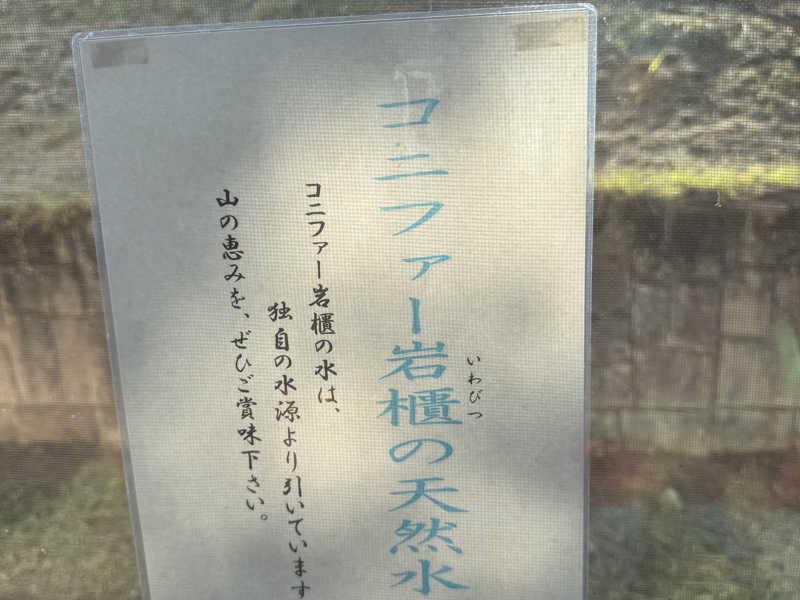 コニファー岩櫃の天然水
いわびつ
コニファー岩櫃の水は、
独自の水源より引いています
山の恵みを、ぜひご賞味下さい。